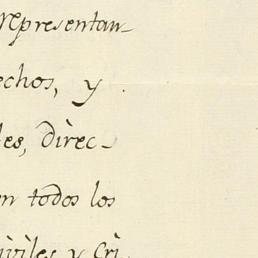 representan-
echos, y
les, direc-
en todos los
iviles y Cri